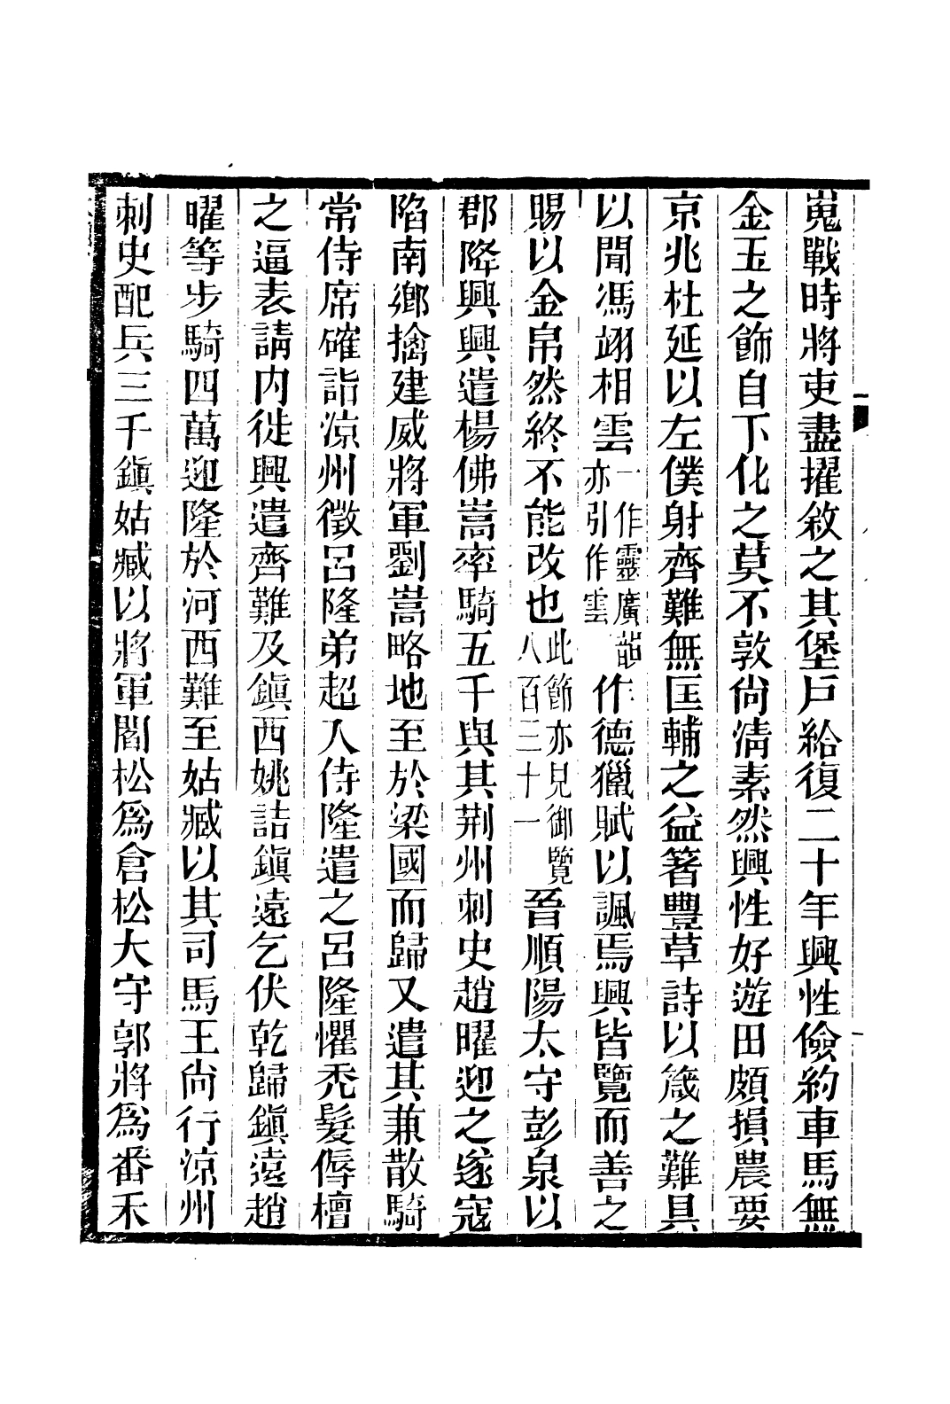 嵬戰時將吏盡擢敘之其堡戸給復二十年興性儉約車馬無
金玉之飾自下化之莫不敦尙淸素然興性好遊田頗損農要
京兆杜延以左僕射齊難無匡輔之益箸豐草詩以箴之難具
以聞馮翊相雲一作靈廣韻亦引作雲作德獵賦以諷焉興皆覽而善之
賜以金帛然終不能改也此節亦見御覽八百三十一晉順陽太守彭泉以
郡降興興遣楊佛嵩率騎五千與其荆州刺史趙曜迎之遂宼
陷南鄉擒建威將軍劉嵩略地至於梁國而歸又遣其兼散騎
常侍席確詣涼州徵呂隆弟超入侍隆遣之呂隆懼禿髮傉檀
之逼表請内徙興遣齊難及鎭西姚詰鎭遠乞伏乾歸鎭遠趙
曜等步騎四萬迎隆於河西難至姑臧以其司馬王尙行涼州
刺史配兵三千鎭姑臧以將軍閻松爲倉松大守郭將爲番禾